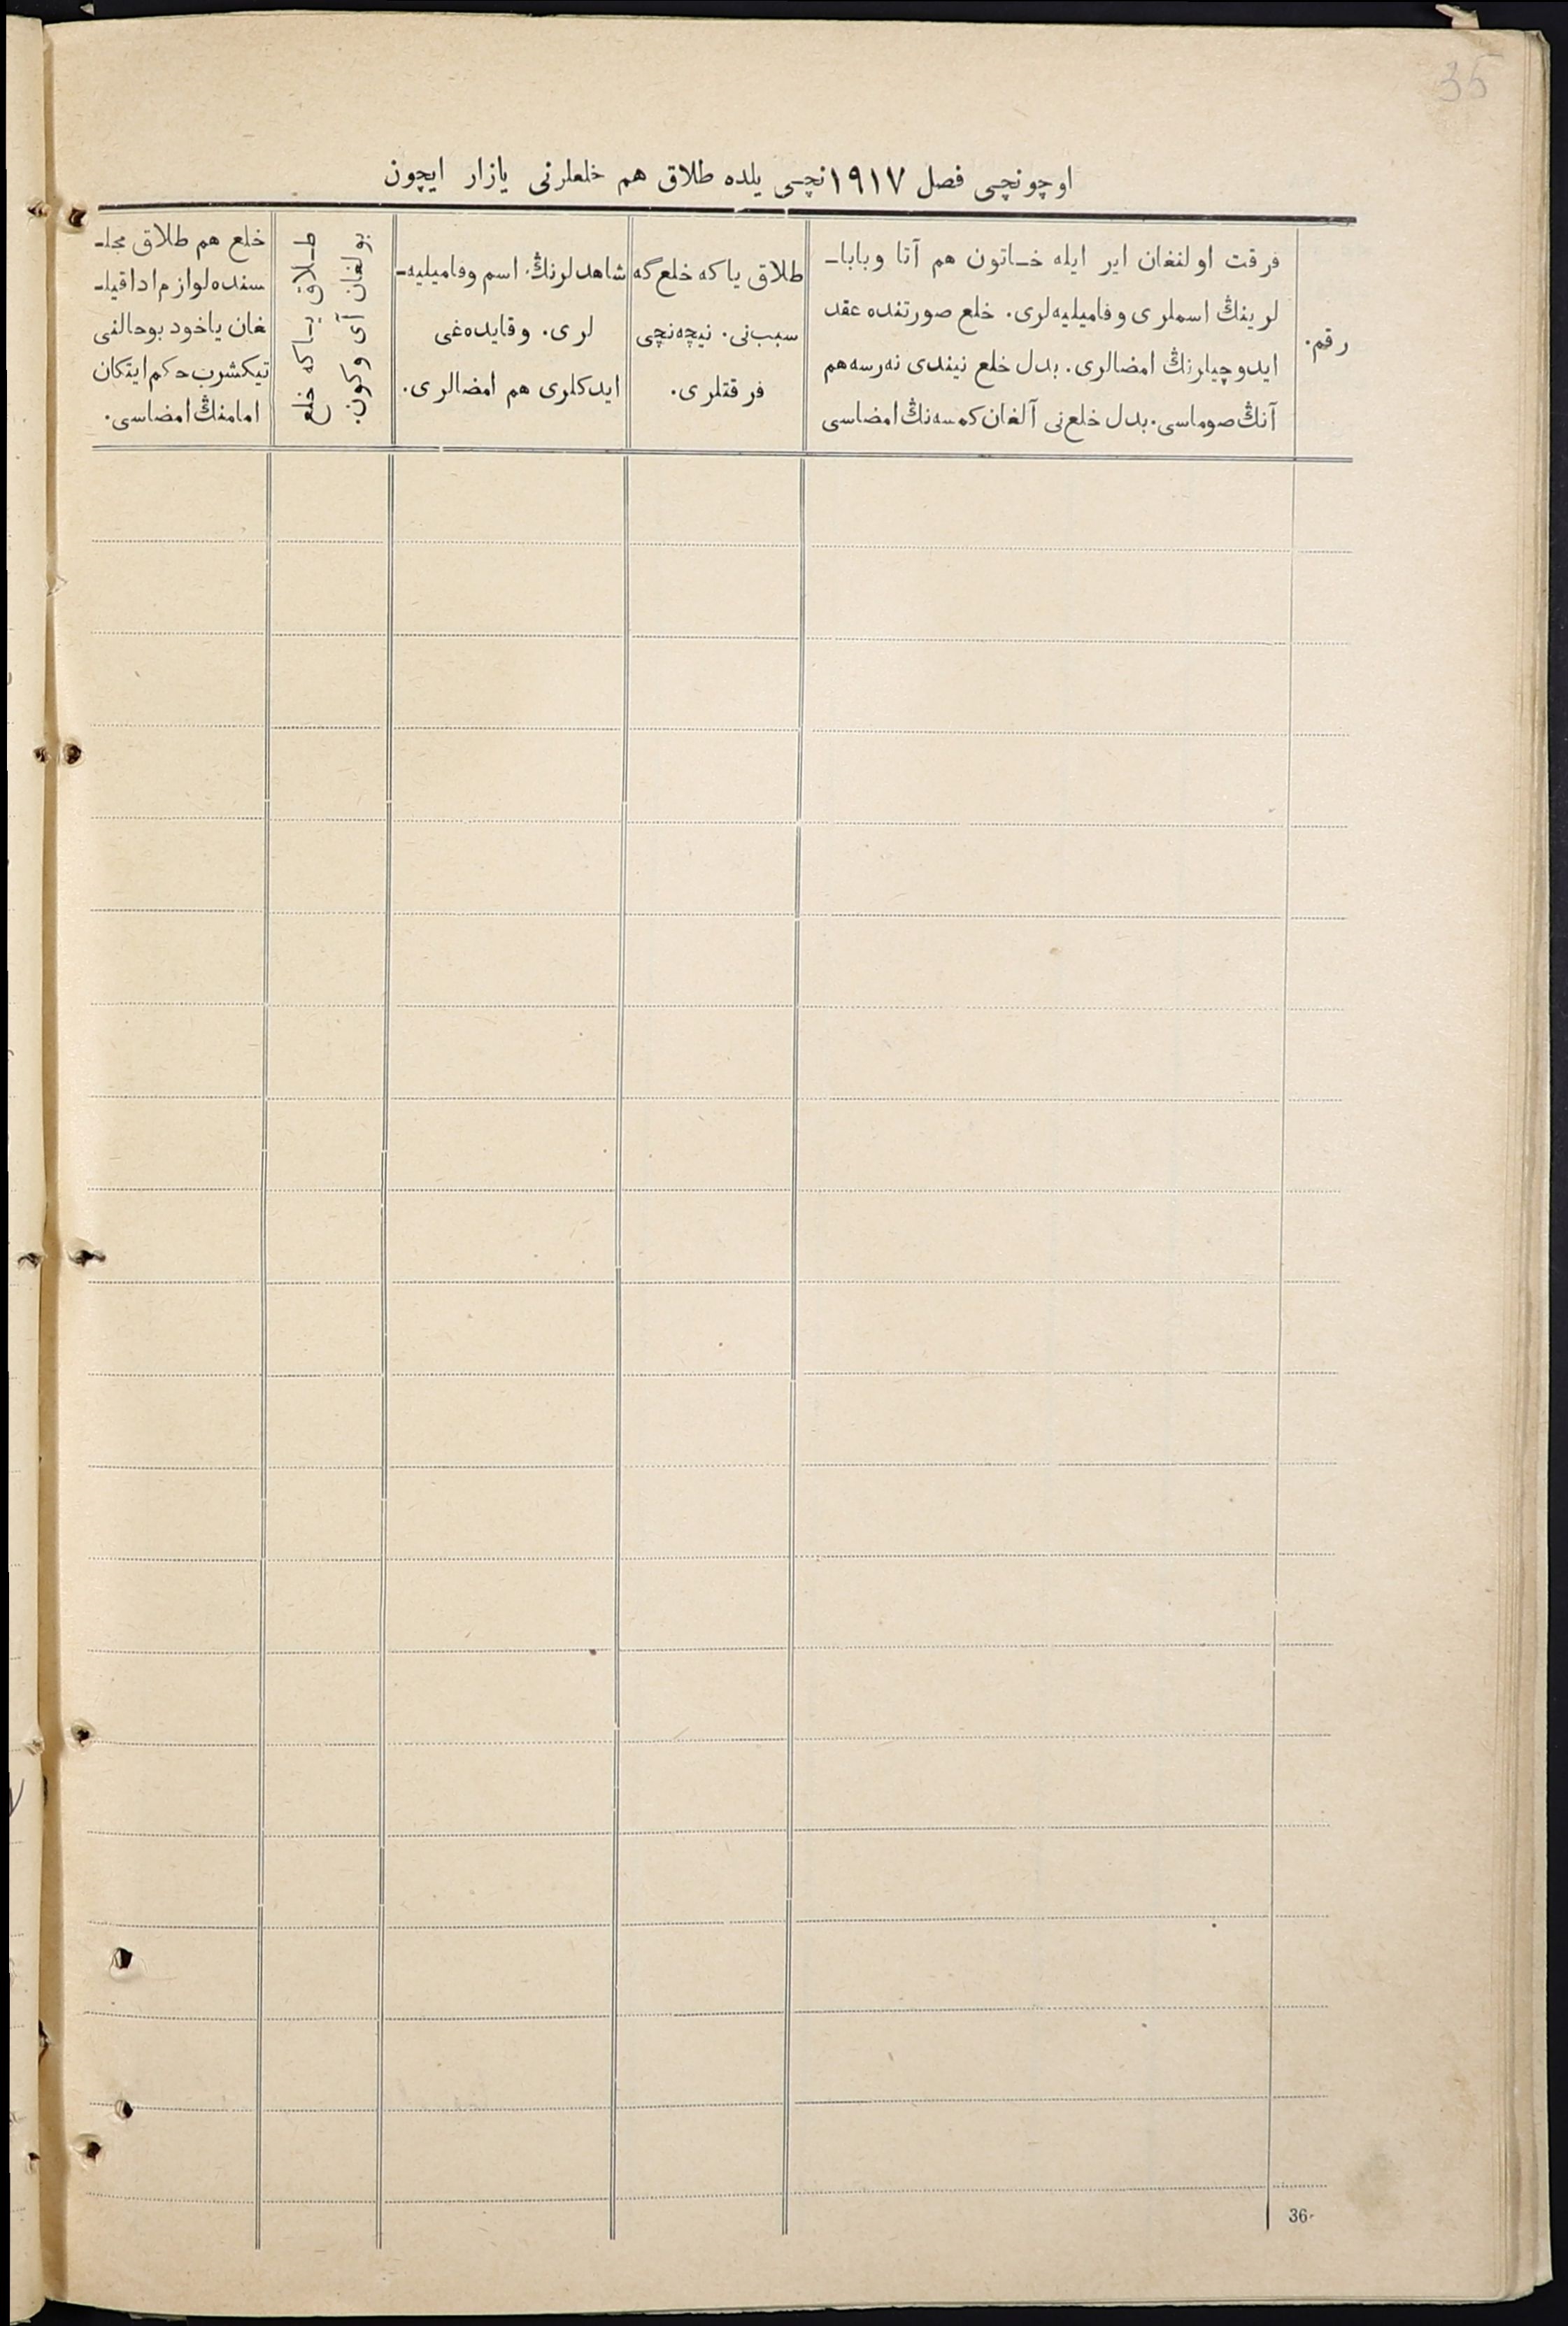 35
اوچونچی فصل ١٩١٧نچی یلده طلاق هم خلعلرنی یازار ایچون
رقم.
فرقت اولنغان ایر ایله خاتون هم آتا وبابا-
لرینڭ اسملری وفامیلیه‌لری. خلع صورتنده عقد
ایدوچیلرنڭ امضالری. بدل خلع نیندی نه‌رسه هم
آنڭ صوماسی. بدل خلع‌نی آلغان کمسه‌نڭ امضاسی
طلاق یاکه خلع‌گه
سبب‌نی. نیچه‌نچی
فرقتلری.
شاهدلرنڭ اسم وفامیلیه-
لری. وقایده‌غی
ایدکلری هم امضالری.
بولغان آی وکون.
طلاق یاکه خلع
خلع هم طلاق مجلـ
سنده لوازم ادا قیلـ
غان یاخود بوحالنی
تیکشرب حکم ایتکان
امامنڭ امضاسی.
36-